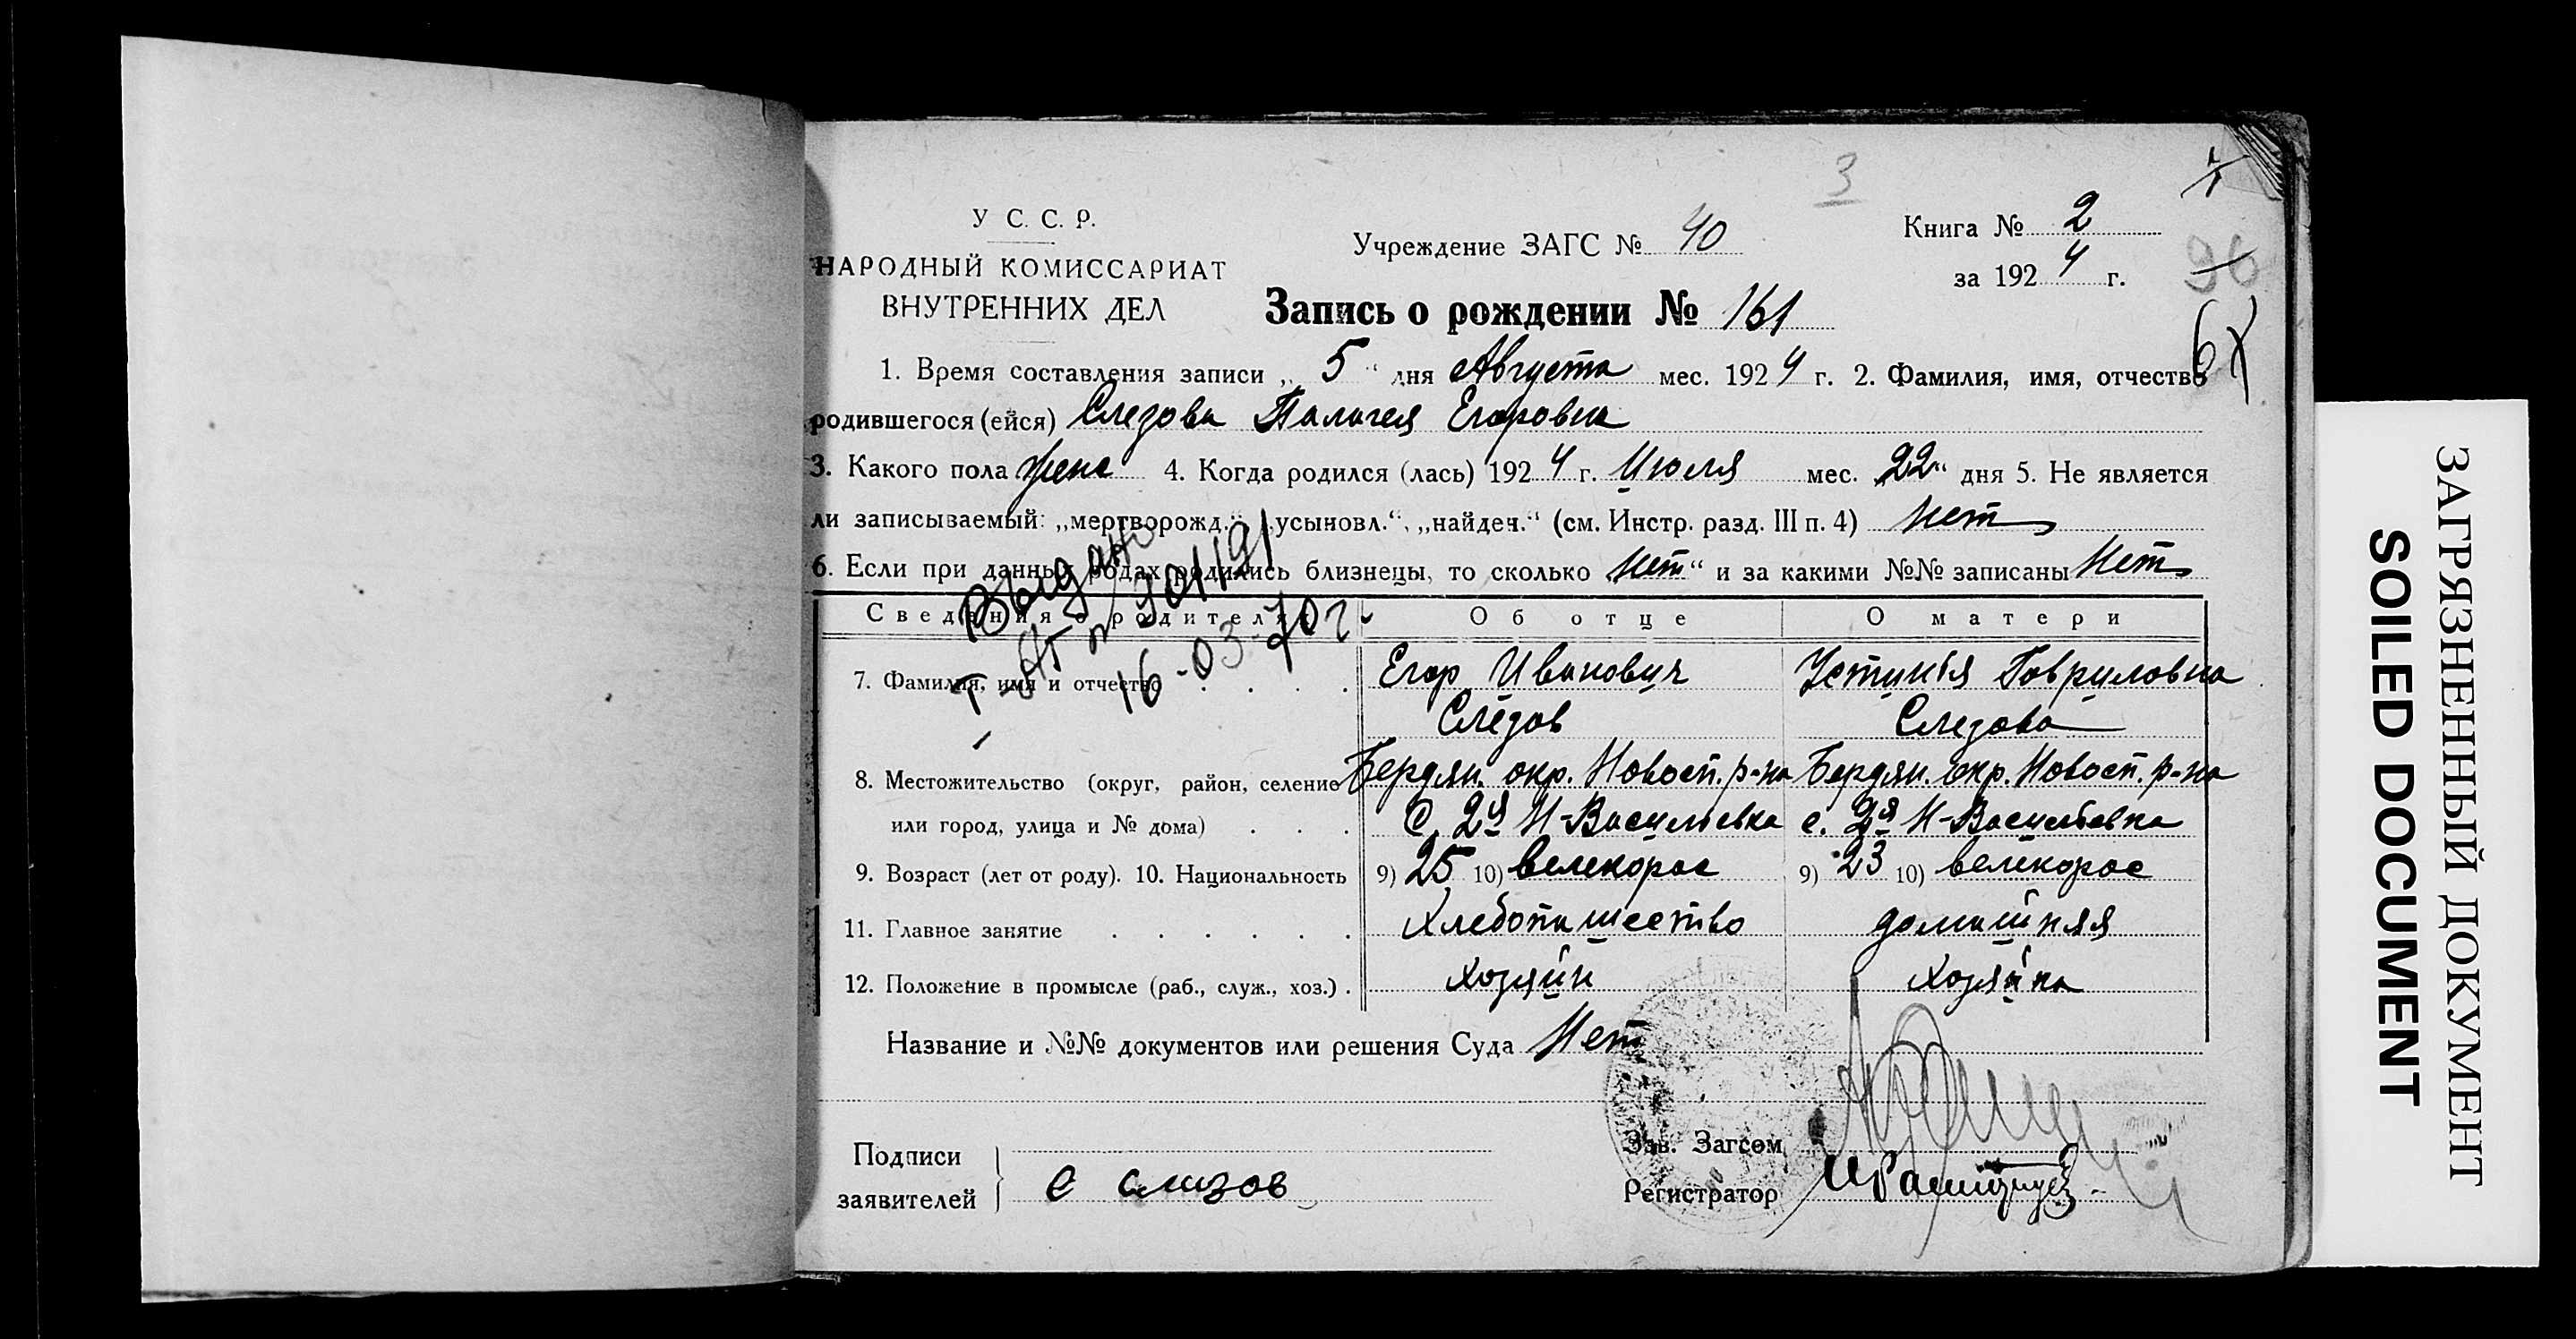 3
У С. С. Р.
НАРОДНЫЙ КОМИССАРИАТ
ВНУТРЕННИХ ДЕЛ
Учреждение ЗАГС № 40
Книга № 2
за 1924 г.
96
Запись о рождении № 161
1. Время составления записи „ 5 “ дня Августа мес. 1924 г. 2. Фамилия, имя, отчество
родившегося (ейся) Слезова Палагея Егоровна
3. Какого пола женс 4. Когда родился (лась) 1924 г. Июля мес. „22“ дня 5. Не является
ли записываемый: „мертворожд.“ „усыновл.“, „найден.“ (см. Инстр. разд. III п. 4) Нет
6. Если при данных родах родились близнецы, то сколько „Нет“ и за какими №№ записаны Нет
Выдано
16-03-70 г
Сведения о родителях
Об отце
О матери
7. Фамилия, имя и отчество . . . .
Егор Иванович
Слезов
Устинья Гавриловна
Слезова
8. Местожительство (округ, район, селение
или город, улица и № дома) . . .
Бердян. окр. Новосп. р-на
с. 2я Н-Васильевка
Бердян. окр. Новосп. р-на
с. 2я Н-Васильевка
9. Возраст (лет от роду). 10. Национальность
9) 25 10) велекорос
9) 23 10) велекорос
11. Главное занятие . . . . . .
Хлебопашество
домашняя
12. Положение в промысле (раб., служ., хоз.) .
хозяин
хозяйка
Название и №№ документов или решения Суда Нет
Подписи
заявителей
Е слизов
Зав. Загсом
Регистратор
ЗАГРЯЗНЕННЫЙ ДОКУМЕНТ
SOILED DOCUMENT